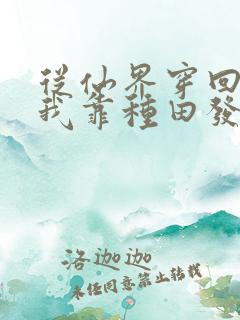 從仙界穿回
我靠種田發
洛迦迦
未經同意禁止轉載